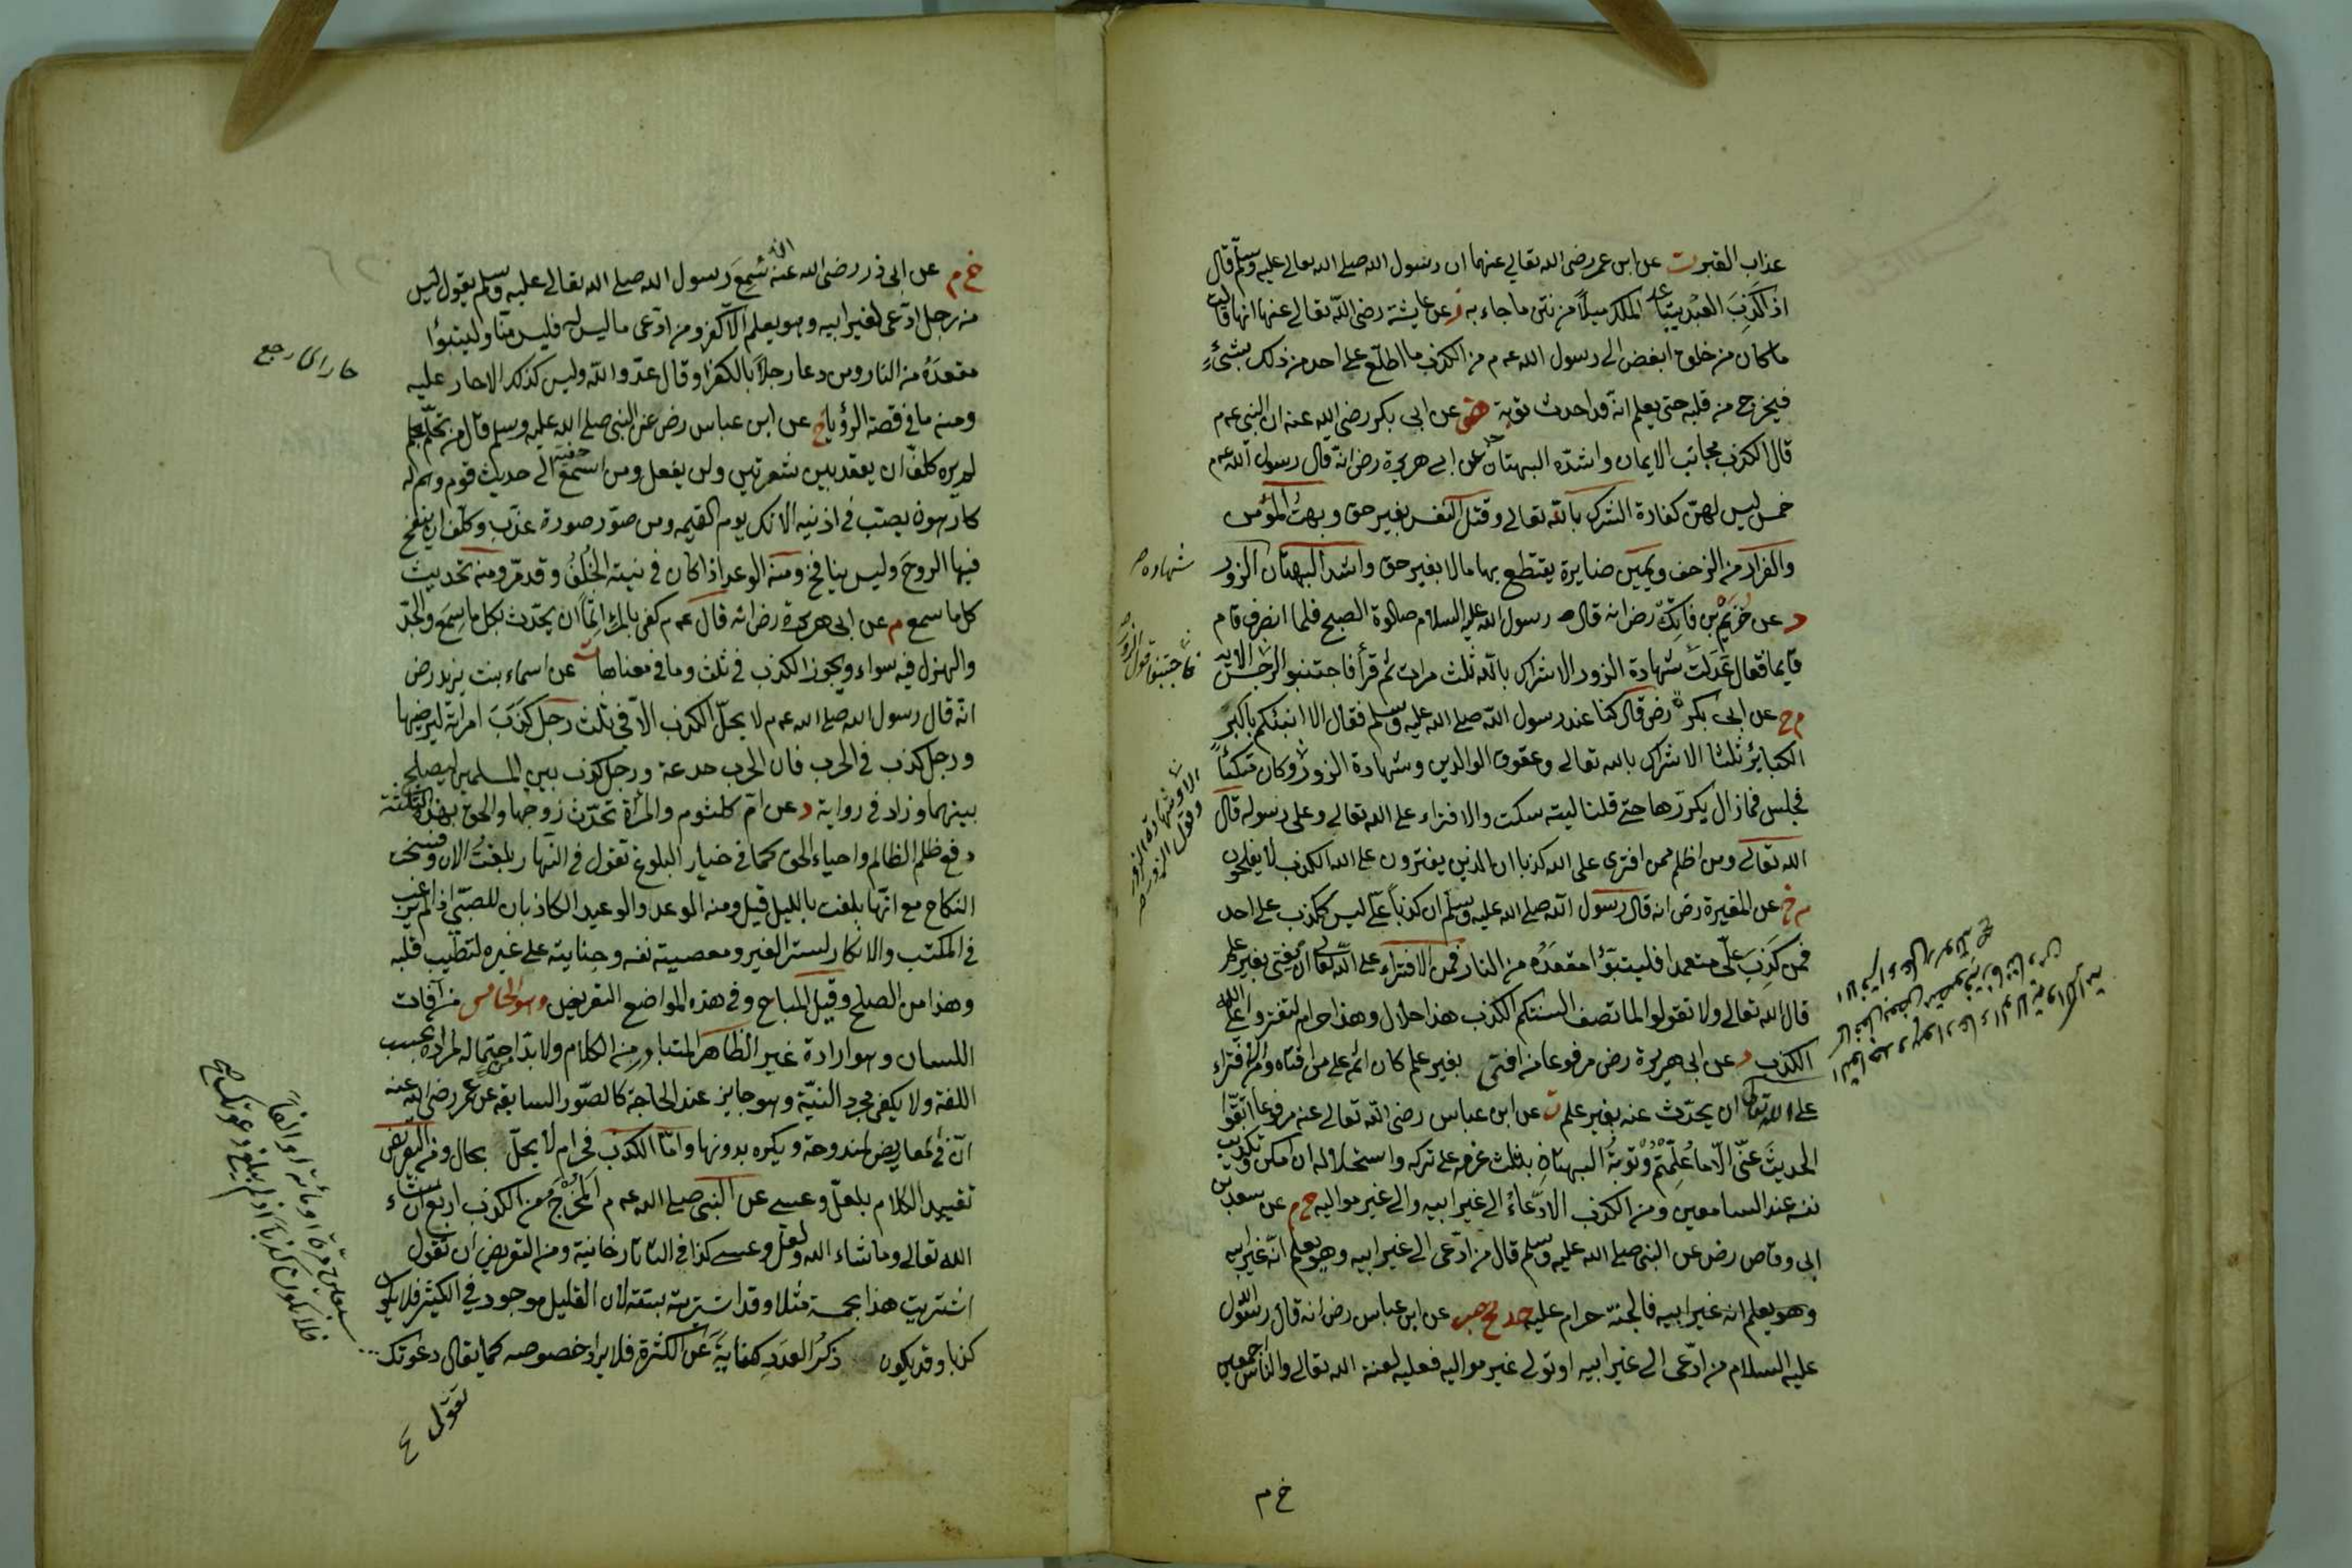 عذاب القبر ت عن ابن عمر رضى الله تعالى عنهما ان رسول الله صلى الله تعالى عليه وسلم قال
اذا كَذِبَ العبد يتباعد الملك ميلاً من نتن ما جاء به ز عن عايشة رضى الله تعالى عنها انها قالت
ما كان من خلق ابغض الى رسول الله عم من الكذب ما اطلع على احد من ذلك بشئ
فيخرج من قلبه حتى يعلم انه قد احدث توبة هق عن ابى بكر رضى الله عنه ان النبى عم
قال الكذب مجانب الايمان واشده البهتان حد عن ابى هريرة رض انه قال رسول الله عم
خمس ليس لهن كفارة الشرك بالله تعالى وقتل النفس بغير حق وبهت المؤمن
والفرار من الزحف ويمين صابرة يقتطع بها مالا بغير حق واشد البهتان الزور
شهادة
د عن خُرَيْم بن فاتِك رض انه قال رسول الله عليه السلام صلوة الصبح فلما انصرف قام
قايما فقال عَدَلَت شهادة الزور الاشراك بالله ثلث مرات ثم قرأ فاجتنبوا الرجس الاية
فاجتنبوا قول الزور
خ م عن ابى بكرة رض قال كنا عند رسول الله صلى الله عليه وسلم فقال الا انبئكم باكبر
الكبائر ثلثا الاشراك بالله تعالى وعقوق الوالدين وشهادة الزور وكان متكئاً
الا وشهادة الزور
وقول الزور
فجلس فما زال يكررها حتى قلنا ليته سكت والافتراء على الله تعالى وعلى رسوله قال
الله تعالى ومن اظلم ممن افترى على الله كذبا ان الذين يفترون على الله الكذب لا يفلحون
خ م عن المغيرة رض انه قال رسول الله صلى الله عليه وسلم ان كذباً علىّ ليس ككذب على احد
فمن كَذِبَ علىّ متعمدا فليتبوّأ مقعَدَه من النار فمن الافتراء على الله تعالى ان يفتى بغير علم
قال الله تعالى ولا تقولوا لما تصف السنتكم الكذب هذا حلال وهذا حرام لتفتروا على الله
الكذب د عن ابى هريرة رض مرفوعا من افتى بغير علم كان اثمه على من افتاه ومن افتراء
على الله تعالى ان يحدّث عنه بغير علم ت عن ابن عباس رضى الله تعالى عنه مرفوعا اتقوا
الحديثَ عنّى الّا ما عُلِّمْتُمْ وتَوبةُ البهتانِ بثلث عزمه على تركه واستحلاله ان امكن وتكذيب
نفسه عند السامعين ومن الكذب الادّعاءُ الى غير ابيه والى غير مواليه خ م عن سعد بن
ابى وقاص رض عن النبى صلى الله عليه وسلم قال من ادّعى الى غير ابيه وهو يعلم انه غير ابيه
وهو يعلم انه غير ابيه فالجنة حرام عليه حد مج حب عن ابن عباس رض انه قال رسول الله
عليه السلام من ادّعى الى غير ابيه او تولى غير مواليه فعليه لعنة الله تعالى والناس اجمعين
خ م
خ م عن ابى ذر رضى الله عنه انه سَمِعَ رسول الله صلى الله تعالى عليه وسلم يقول ليس
من رجل ادّعى لغير ابيه وهو يعلم الا كفر ومن ادّعى ما ليس له فليس منّا وليتبوّأ
مقعدَهُ من النار ومن دعا رجلاً بالكفر او قال عدوّ الله وليس كذلك الا حار عليه
حار اى رجع
ومنه ما فى قصة الرؤيا خ عن ابن عباس رض عن النبى صلى الله عليه وسلم قال من تحلّم بحلم
لم يره كلف ان يعقد بين شعرتين ولن يفعل ومن استمع الى حديث قوم وهم له
كارهون يصبّ فى اذنيه الانك يوم القيمه ومن صوّر صورة عذّب وكلّف ان ينفخ
فيها الروحَ وليس بنافخ ومنه الوعد اذا كان فى نيته الخُلْفُ وقد مرّ ومنه تحديث
كل ما سمع م عن ابى هريرة رض انه قال عم كفى بالمرء اثماً ان يحدّث بكل ما سمِعَ والجِدّ
والهزل فيه سواء ويجوز الكذب فى ثلث وما فى معناها ت عن اسماء بنت يزيد رض
انه قال رسول الله صلى الله عم لا يحلّ الكذب الا فى ثلث رجل كَذَبَ امراته ليرضيها
ورجل كذب فى الحرب فان الحرب خدعة ورجل كذب بين المسلمين ليصلح
بينهما وزاد فى رواية د عن ام كلثوم والمرأة تحدّث زوجها والحق بهذه الثلثة
دفع ظلم الظالم واحياء الحق كما فى خيار البلوغ تقول فى النهار بلغتُ الان وفسخت
النكاح مع انها بلغت بالليل قيل ومنه الوعد والوعيد الكاذبان للصبىّ اذا لم يرغب
فى المكتب والانكار لستر الغير ومعصية نفسه وجنايته على غيره لتطيب قلبه
وهذا من الصلح وقيل المباح وفى هذه المواضع التعريض وهو الخامس من آفات
اللسان وهو ارادة غير الظاهر المتبادر من الكلام ولا بد احتماله لمراده بحسب
اللغة ولا يكفى مجرد النيّة وهو جايز عند الحاجة كالصّور السابقة عن عمر رضى الله عنه
انّ فى المعاريض لمندوحة ويكره بدونها وامّا الكذب فحرام لا يحلّ بحال ومن التعريض
تقييد الكلام بلعلّ وعسى عن النبى صلى الله عم المَخْرَجُ من الكذب اربع ان شاء
الله تعالى وما شاء الله ولعلّ وعسى كذا فى التاتارخانية ومن التعريض ان تقول
اشتريت هذا بخمسة مثلا وقد اشتريته بستة لان القليل موجود فى الكثير فلا يكون
كذبا وقد يكون ذكرُ العدد كنايةً عن الكثرة فلا يراد خصوصه كما يقال دعوتك
سبعين مرّة او مائة او الفاً
فلا يكون كذبا اذا لم يبلغ دعوتك